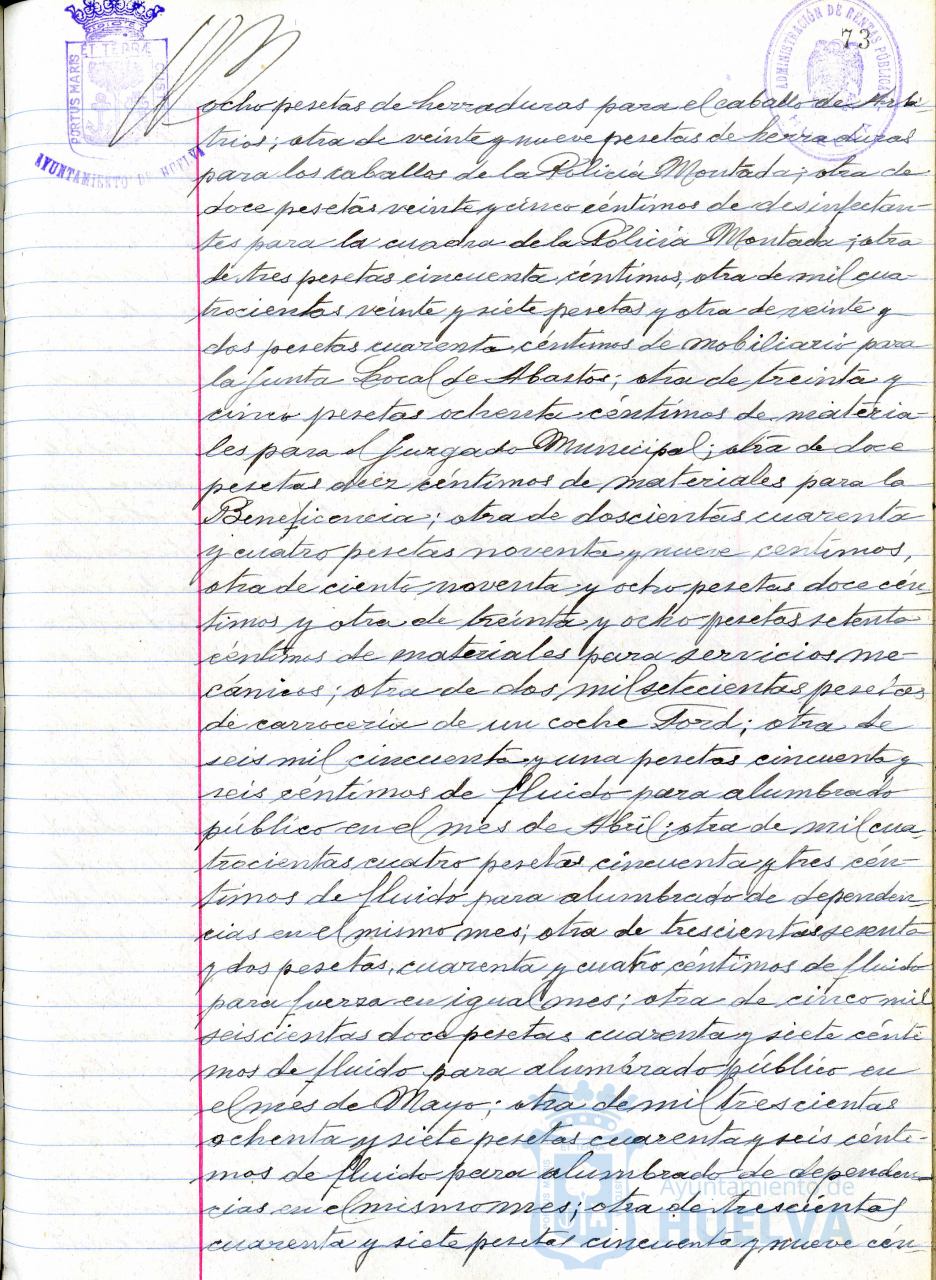 73
PORTUS MARIS
ET TERRÆ
CUSTO
AYUNTAMIENTO DE HUELVA
ADMINISTRACIÓN DE RENTAS PÚBLICAS
ocho pesetas de herraduras para el caballo de Arbi-
trios; otra de veinte y nueve pesetas de herraduras
para los caballos de la Policía Montada; otra de
doce pesetas veinte y cinco céntimos de desinfectan-
tes para la cuadra de la Policía Montada; otra
de tres pesetas cincuenta céntimos, otra de mil cua-
trocientas veinte y siete pesetas y otra de veinte y
dos pesetas cuarenta céntimos de mobiliario para
la Junta Local de Abastos; otra de treinta y
cinco pesetas ochenta céntimos de materia-
les para el Juzgado Municipal; otra de doce
pesetas diez céntimos de materiales para la
Beneficencia; otra de doscientas cuarenta
y cuatro pesetas noventa y nueve centimos,
otra de ciento noventa y ocho pesetas doce cén-
timos y otra de treinta y ocho pesetas setenta
céntimos de materiales para servicios me-
cánicos; otra de dos mil setecientas pesetas
de carrocería de un coche Ford; otra de
seis mil cincuenta y una pesetas cincuenta y
seis céntimos de fluido para alumbrado
público en el mes de Abril; otra de mil cua-
trocientas cuatro pesetas cincuenta y tres cén-
timos de fluido para alumbrado de dependen-
cias en el mismo mes; otra de trescientas sesenta
y dos pesetas, cuarenta y cuatro céntimos de fluido
para fuerza en igual mes; otra de cinco mil
seiscientas doce pesetas cuarenta y siete cénti-
mos de fluido para alumbrado público en
el mes de Mayo; otra de mil trescientas
ochenta y siete pesetas cuarenta y seis cénti-
mos de fluido para alumbrado de dependen-
cias en el mismo mes; otra de trescientas
cuarenta y siete pesetas cincuenta y nueve cén-
Ayuntamiento de
HUELVA